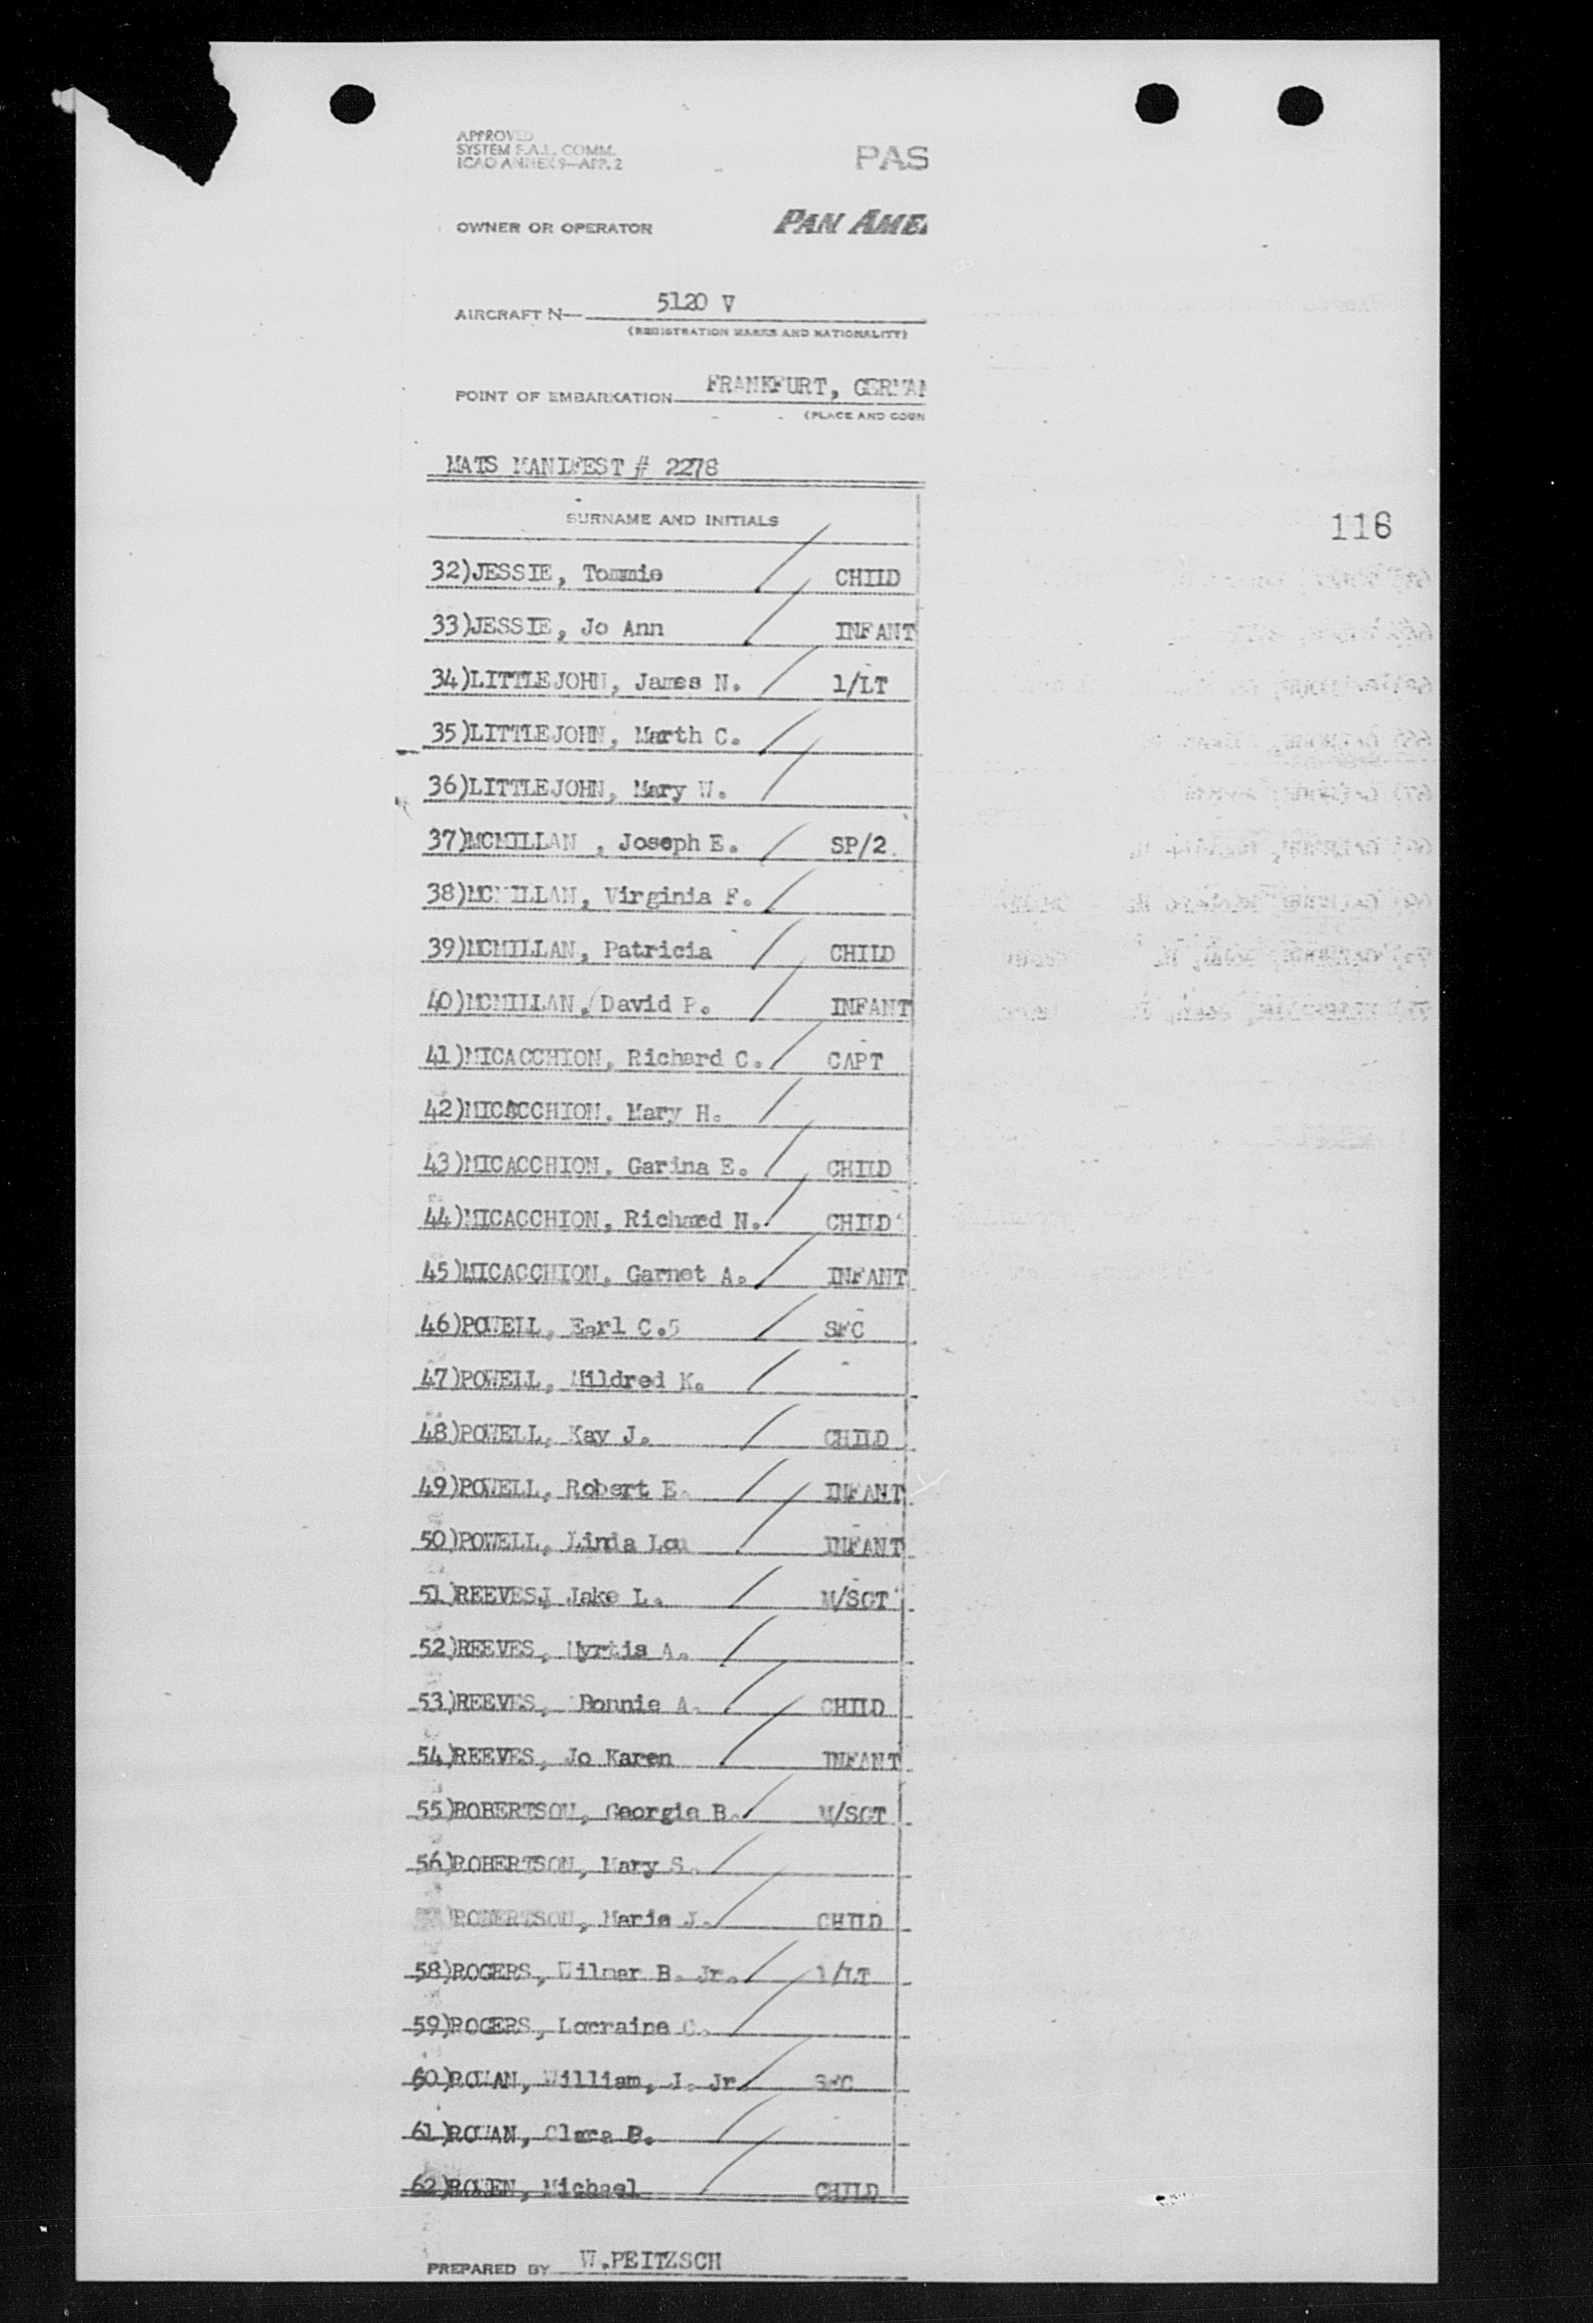 APPROVED
SYSTEM F.A.L. COMM.
ICAO ANNEX 9—APP. 2
PAS
OWNER OR OPERATOR PAN AME
AIRCRAFT N— 5120 V
(REGISTRATION MARKS AND NATIONALITY)
POINT OF EMBARKATION FRANKFURT, GERMAN
(PLACE AND COUN
MATS MANIFEST # 2278
SURNAME AND INITIALS
116
32)JESSIE, Tommie CHILD
33)JESSIE, Jo Ann INFANT
34)LITTLEJOHN, James N. 1/LT
35)LITTLEJOHN, Marth C.
36)LITTLEJOHN, Mary W.
37)MCMILLAN , Joseph E. SP/2
38)MCMILLAN, Virginia F.
39)MCMILLAN, Patricia CHILD
40)MCMILLAN, David P. INFANT
41)MICACCHION, Richard C. CAPT
42)MICACCHION. Mary H.
43)MICACCHION. Garina E. CHILD
44)MICACCHION, Richard N. CHILD
45)MICACCHION. Garnet A. INFANT
46)POWELL, Earl C.5 SFC
47)POWELL, Mildred K.
48)POWELL, Kay J. CHILD
49)POWELL, Robert E. INFANT
50)POWELL, Linda Lou INFANT
51)REEVES, Jake L. M/SGT
52)REEVES, Myrtis A.
53)REEVES, Bonnie A. CHILD
54)REEVES, Jo Karen INFANT
55)ROBERTSON, Georgie B. M/SGT
56)ROBERTSON, Mary S.
ROBERTSON, Marie J. CHILD
58)ROGERS, Wilmer B. Jr. 1/LT
59)ROGERS, Lorraine C.
60)ROWAN, William, J. Jr SFC
61)ROWAN, Clara B.
62)ROWEN, Michael CHILD
PREPARED BY W.PEITZSCH